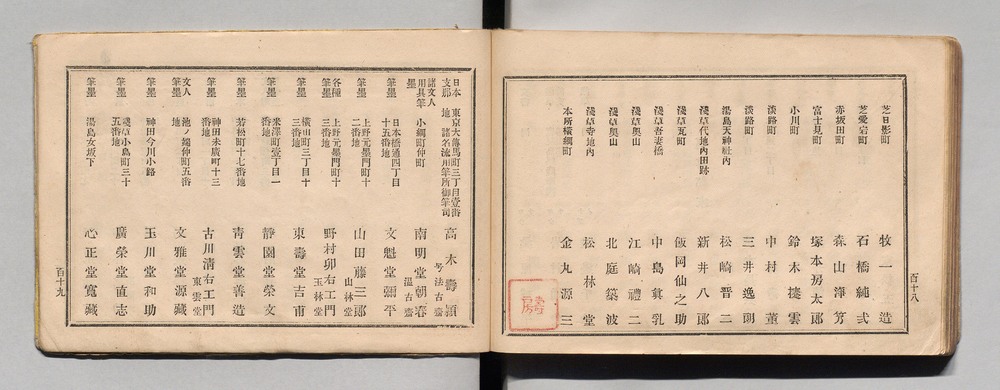 芝日影町 牧一造
芝愛宕町 石橋純弌
赤坂田町 森山溥笏
富士見町 塚本房太郎
小川町 鈴木撻雲
淡路町 中村董
淡路町 三井逸朗
湯島天神社內 松崎晋二
淺草代地内田跡 新井八郎
淺草瓦町 飯岡仙之助
淺草吾妻橋 中島眞乳
淺草奥山 江崎禮二
淺草奥山 北庭築波
淺草寺地內 松林堂
本所橫綱町 金丸源三
百十八
日本支那 東京大傳馬町三丁目壹番地 諸名流用筆所御筆司 高木壽穎
諸文人用具筆墨 小網町仲町 南明堂朝春 号法古齋
筆墨 日本橋通四丁目十五番地 文魁堂彌平 温古齋
筆墨 上野元黒門町十二番地 山田藤三郎
各種筆墨 上野元黒門町十三番地 野村卯右エ門 山林堂
筆墨 橫山町三丁目十三番地 東壽堂吉甫 玉林堂
筆墨 米澤町壹丁目一番地 靜園堂榮文
筆墨 若松町十七番地 靑雲堂善造
筆墨 神田末廣町十三番地 古川清右エ門 東雲堂
文人筆墨 池ノ端仲町五番地 文雅堂源藏
筆墨 神田今川小路 玉川堂和助
筆墨 淺草小島町三十五番地 廣榮堂直志
筆墨 湯島女坂下 心正堂寬藏
百十九